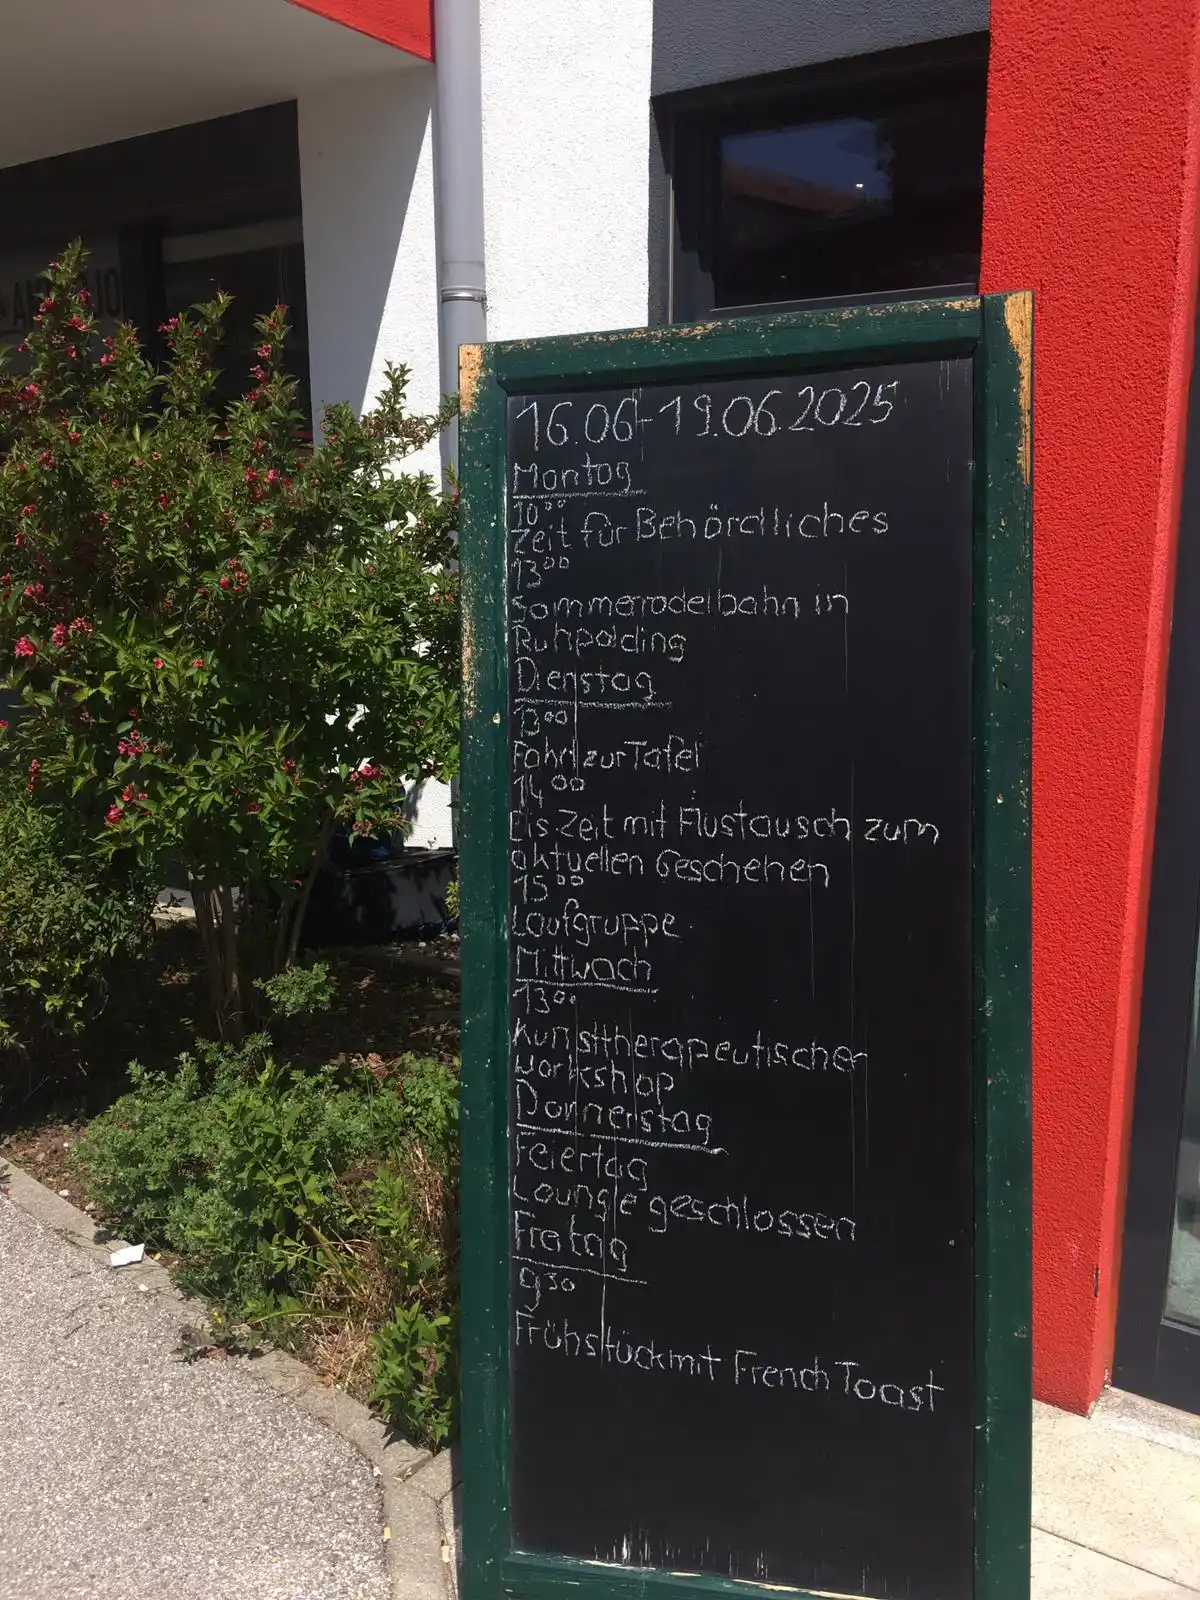 16.06-19.06.2025
Montag
10⁰⁰
Zeit für Behördliches
13⁰⁰
Sommerrodelbahn in
Ruhpolding
Dienstag
13⁰⁰
Fahrt zur Tafel
14⁰⁰
Eis Zeit mit Austausch zum
aktuellen Geschehen
15⁰⁰
Laufgruppe
Mittwoch
13⁰⁰
Kunsttherapeutischer
Workshop
Donnerstag
Feiertag
Lounge geschlossen
Freitag
9³⁰
Frühstück mit French Toast